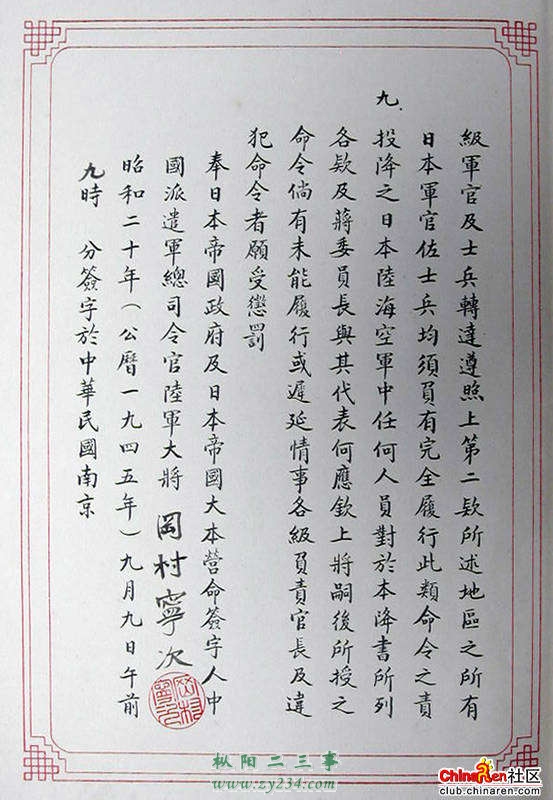 級軍官及士兵轉達遵照上第二欵所述地區之所有
日本軍官佐士兵均須負有完全履行此類命令之責
九、投降之日本陸海空軍中任何人員對於本降書所列
各欵及蔣委員長與其代表何應欽上將嗣後所授之
命令倘有未能履行或遲延情事各級負責官長及違
犯命令者願受懲罰
奉日本帝國政府及日本帝國大本營命簽字人中
國派遣軍總司令官陸軍大將 岡村寧次
昭和二十年(公曆一九四五年)九月九日午前
九時 分簽字於中華民國南京
枞阳二三事
www.zy234.com
Chinaren.com 社区
club.chinaren.com